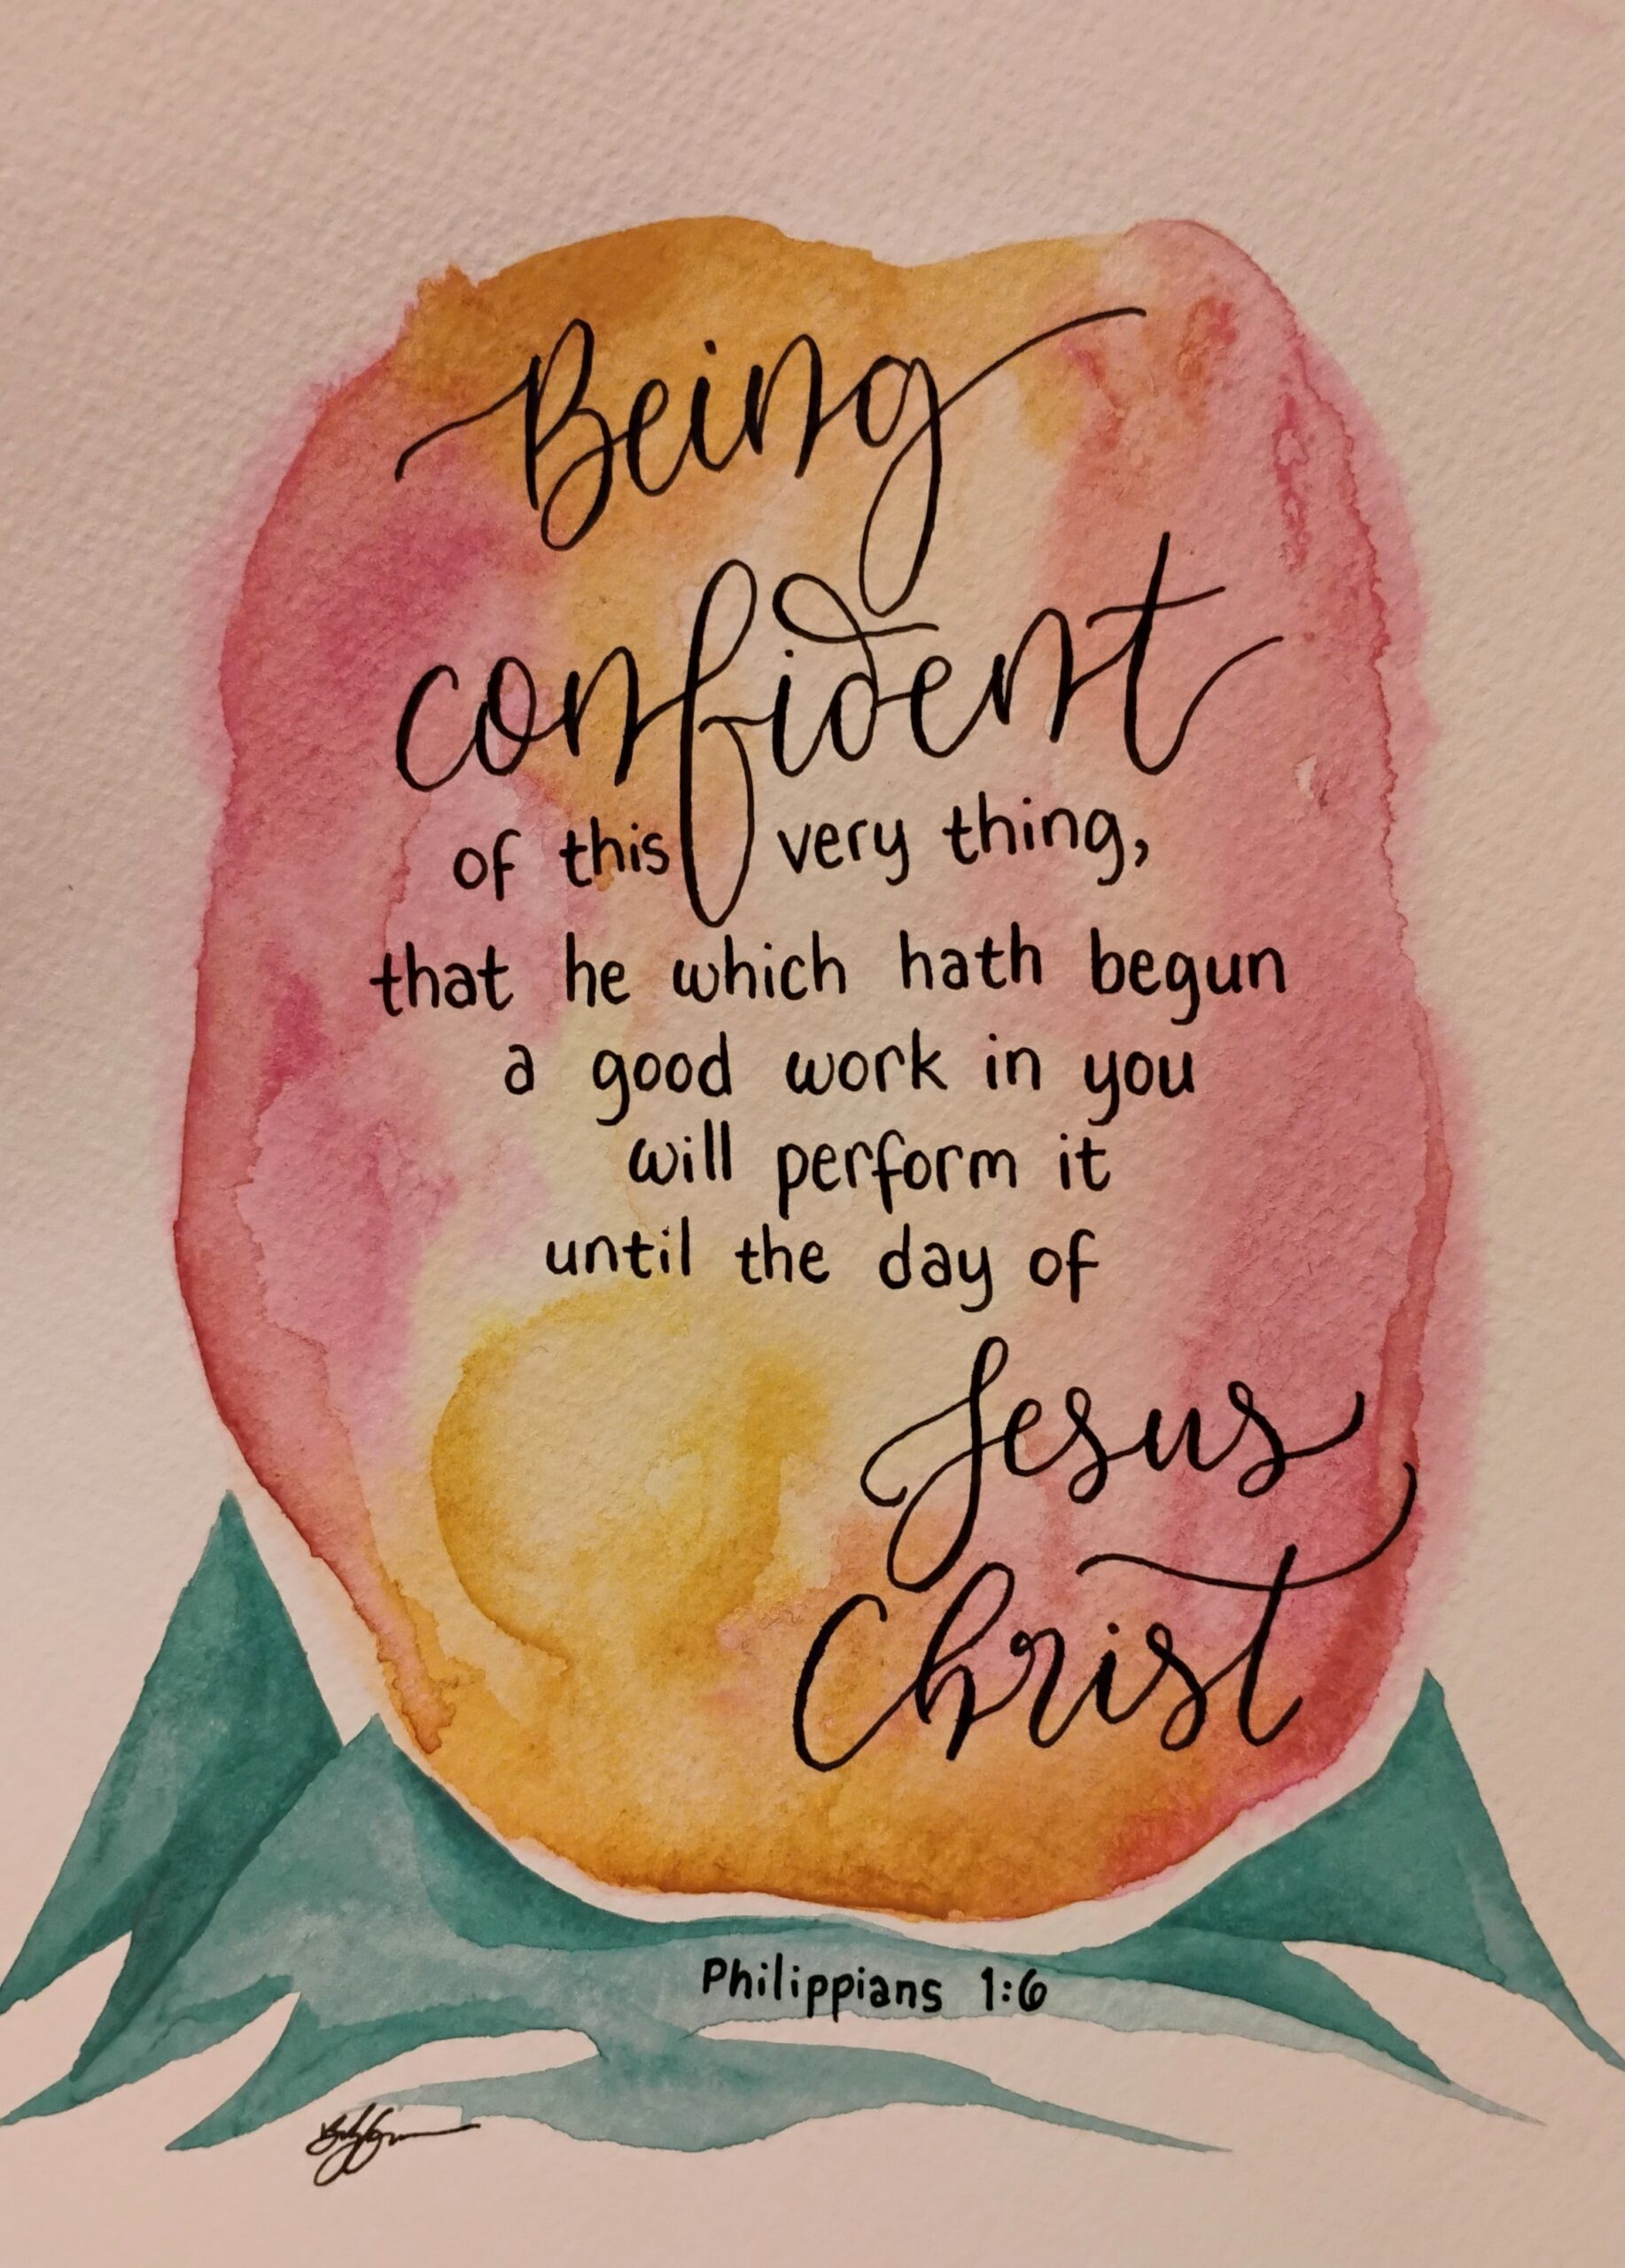 Being
confident
of this very thing,
that he which hath begun
a good work in you
will perform it
until the day of
Jesus
Christ
Philippians 1:6